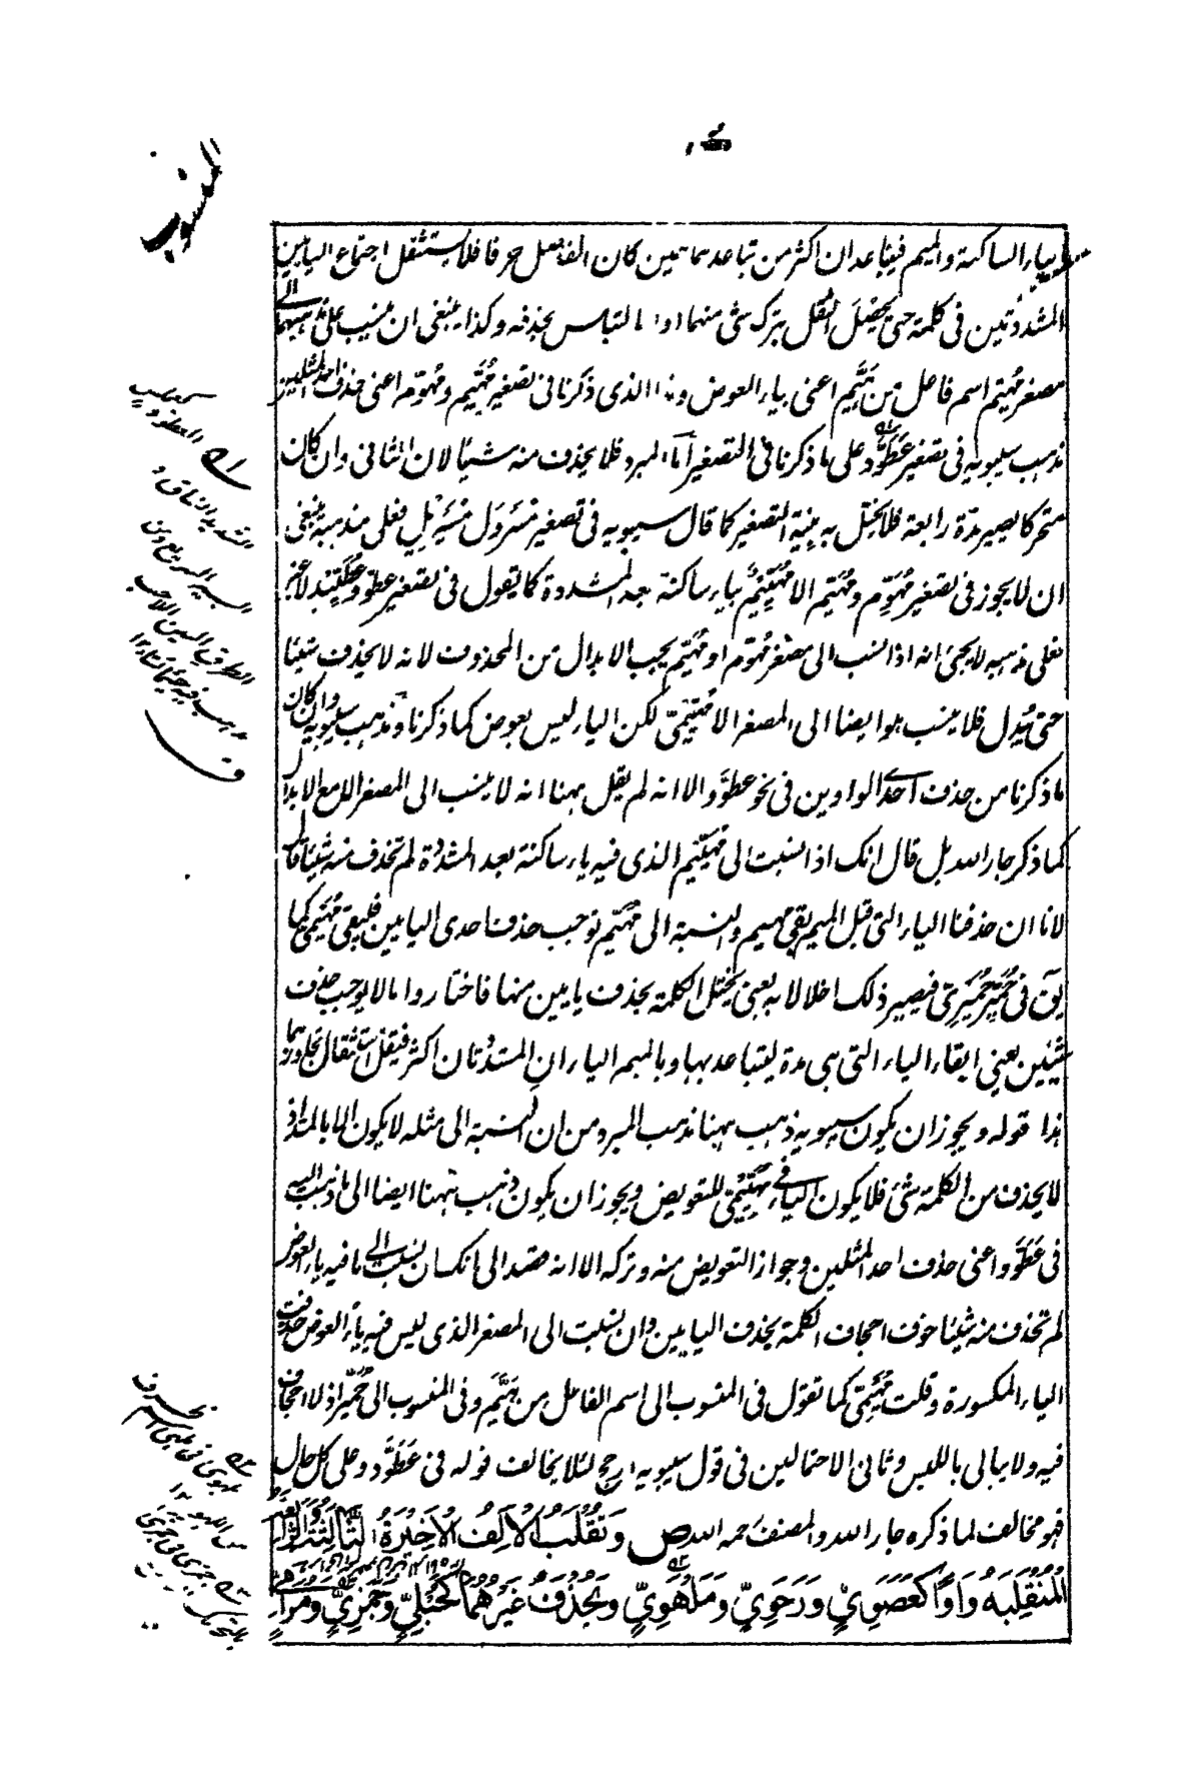 المنسوب
بالياء الساكنة والميم فيتباعدان اكثر من تباعدهما حين كان الفاصل حرفا فلا يستثقل اجتماع اليائين
المشددتين فى كلمة حتى يحصل الثقل بترك شئ منهما او الالتباس بحذفه وكذا ينبغى ان ينسب على مذهبهما الى
مصغر مُهَيِّم اسم فاعل من هَيَّم اعنى بياء العوض وهذا الذى ذكرنا فى تصغير مُهَيِّم ومُهَوِّم اعنى حذف احد المثلين
مذهب سيبويه فى تصغير عَطَوَّد على ما ذكرنا فى التصغير اما المبرد فلا يحذف منه شيئا لان الثانى وان كان
متحركا يصير مدة رابعة فلا يختل به بنية التصغير كما قال سيبويه فى تصغير مُسَرْوَل مُسَيْرِيل فعلى مذهبه ينبغى
ان لا يجوز فى تصغير مُهَوِّم ومُهَيِّم الا مُهَيِّيْمٌ بياء ساكنة بعد المشددة كما يقول فى تصغير عطوّد عُطَيِّيد لا غير
فعلى مذهبه لا يجئ انه اذا نسب الى مصغر مُهَوِّم او مُهَيِّم يجب الابدال من المحذوف لانه لا يحذف شيئا
حتى يُبدل فلا ينسب هو ايضا الى المصغر الا مُهَيِّيْمِىّ لكن الياء ليس بعوض كما ذكرنا ومذهب سيبويه وان كان
ما ذكرنا من حذف احدى الواوين فى نحو عطوّد الا انه لم يقل ههنا انه لا ينسب الى المصغر الا مع الابدال
كما ذكر جار الله بل قال انك اذا نسبت الى مُهَيِّيْم الذى فيه ياء ساكنة بعد المشددة لم تحذف منه شيئا قال
لانا ان حذفنا الياء التى قبل الميم بقى مهيم والنسبة الى مُهَيِّم توجب حذف احدى اليائين فيبقى مُهَيْمِىّ كما
يق فى حُمَيِّر حُمَيْرِىّ فيصير ذلك اخلالا به يعنى يختل الكلمة بحذف يائين منها فاختاروا ما لا يوجب حذف
شيئين يعنى ابقاء الياء التى هى مدة ليتباعد بها وبالميم الياءان المشددتان اكثر فيقل استثقال تجاورهما
هذا قوله ويجوز ان يكون سيبويه ذهب ههنا مذهب المبرد من ان النسبة الى مثله لا يكون الا بالمد اذ
لا يحذف من الكلمة شئ فلا يكون الياء فى مُهَيِّيْمِىّ للتعويض ويجوز ان يكون ذهب ههنا ايضا الى ما ذهب اليه
فى عَطَوَّد اعنى حذف احد المثلين وجواز التعويض منه وتركه الا انه قصد الى انك ان نسبت الى ما فيه ياء العوض
لم تحذف منه شيئا خوف اجحاف الكلمة بحذف اليائين وان نسبت الى المصغر الذى ليس فيه ياء العوض حذفت
الياء المكسورة وقلت مُهَيْمِىّ كما تقول فى المنسوب الى اسم الفاعل من هَيَّم وفى المنسوب الى حُمَيِّر اذ لا اجحاف
فيه ولا يبالى باللبس وثانى الاحتمالين فى قول سيبويه ارجح لئلا يخالف قوله فى عَطَوَّد وعلى كل حال
فهو مخالف لما ذكره جار الله والمصنف رحمه الله ص وَتُقْلَبُ الْاَلِفُ الْاَخِيْرَةُ الثَّالِثَةُ وَالرَّابِعَةُ
الْمُنْقَلِبَةُ وَاوًا كَعَصَوِىٍّ وَرَحَوِىٍّ وَمَلْهَوِىٍّ وَيُحْذَفُ غَيْرُهُمَا كَحُبْلِىٍّ وَجَمَزِىٍّ وَمُرَامِىٍّ